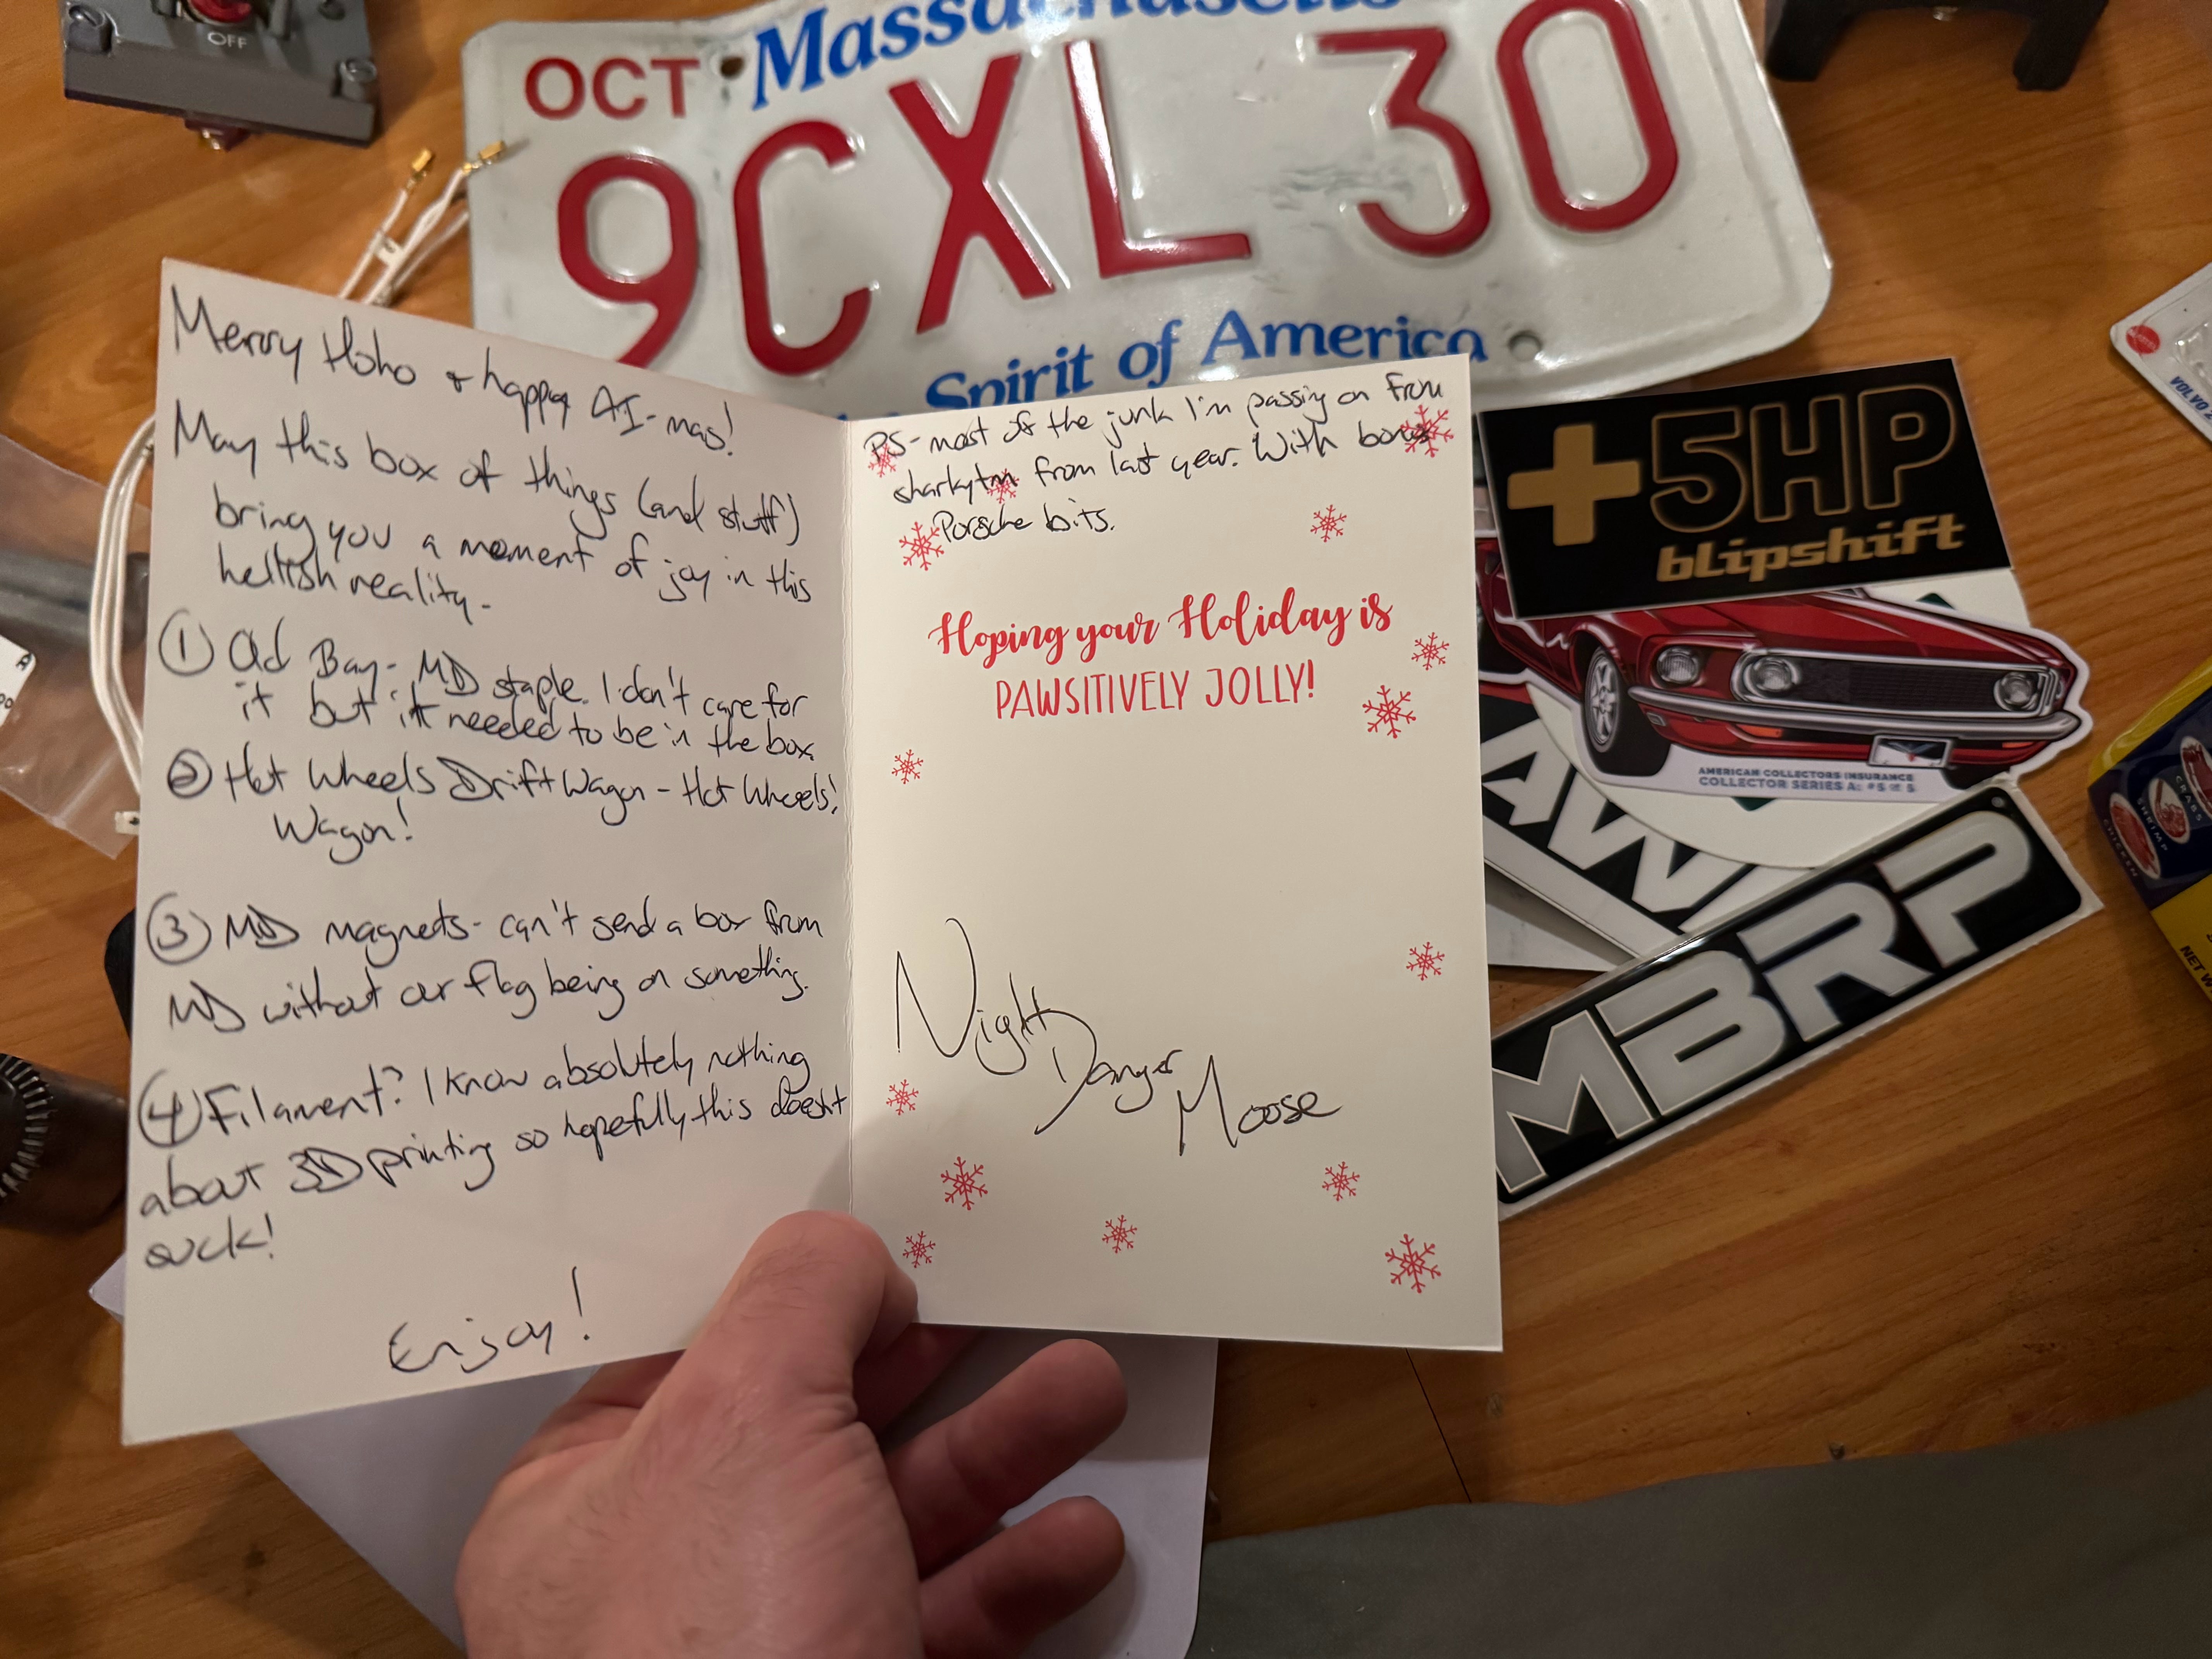 OFF
OCT
Massachusetts
9CXL 30
Spirit of America
Merry Hoho + happy AI-mas!
May this box of things (and stuff)
bring you a moment of joy in this
hellish reality.
① Old Bay - MD staple. I don't care for
it but it needed to be in the box.
② Hot Wheels Drift Wagon - Hot Wheels!
Wagon!
③ MD magnets - can't send a box from
MD without our flag being on something.
④ Filament? I know absolutely nothing
about 3D printing so hopefully this doesn't
suck!
Enjoy!
PS - most of the junk I'm passing on from
sharkytm from last year. With bonus
Porsche bits.
Hoping your Holiday is
PAWSITIVELY JOLLY!
Night
Danger
Moose
+5HP
blipshift
AMERICAN COLLECTORS INSURANCE
COLLECTOR SERIES A: #5 OF 5
AW
MBRP
VOLVO
CRABS
SHRIMP
CHICKEN
NET W